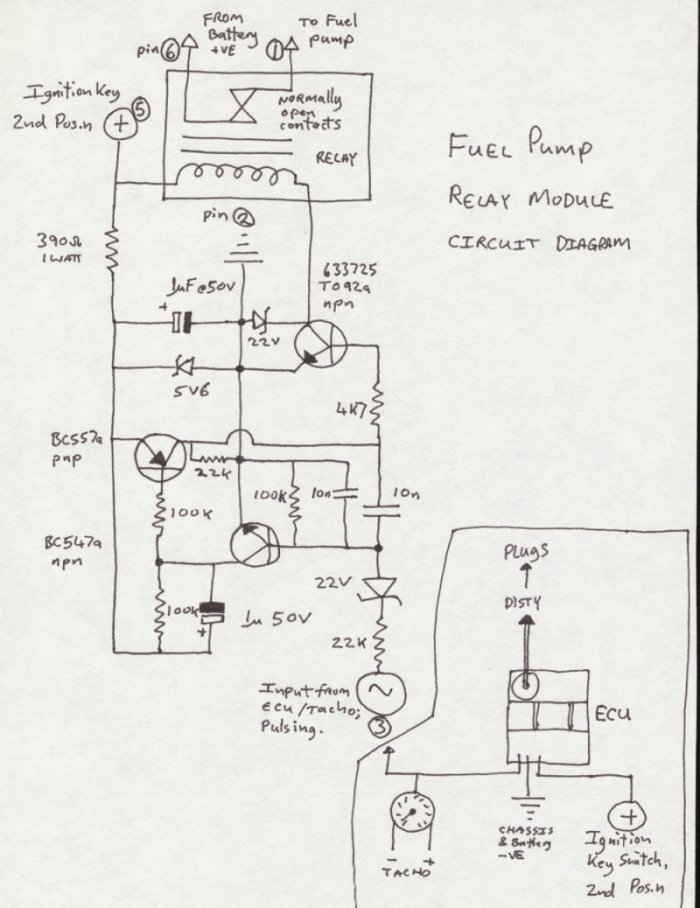 FROM
Battery
+VE
TO Fuel
pump
pin 6
1
Ignition Key
2nd Pos.n
5
+
NORMALLY
open
contacts
RELAY
FUEL PUMP
RELAY MODULE
CIRCUIT DIAGRAM
pin 2
390Ω
1WATT
633725
TO92a
npn
1µF@50V
+
22V
5V6
4K7
BC557a
pnp
22K
100K
100K
10n
10n
BC547a
npn
22V
100K
+
1µ 50V
22K
Input from
ECU/Tacho;
Pulsing.
3
PLUGS
DISTY
ECU
CHASSIS
& Battery
-VE
+
Ignition
Key Switch,
2nd Pos.n
- +
TACHO